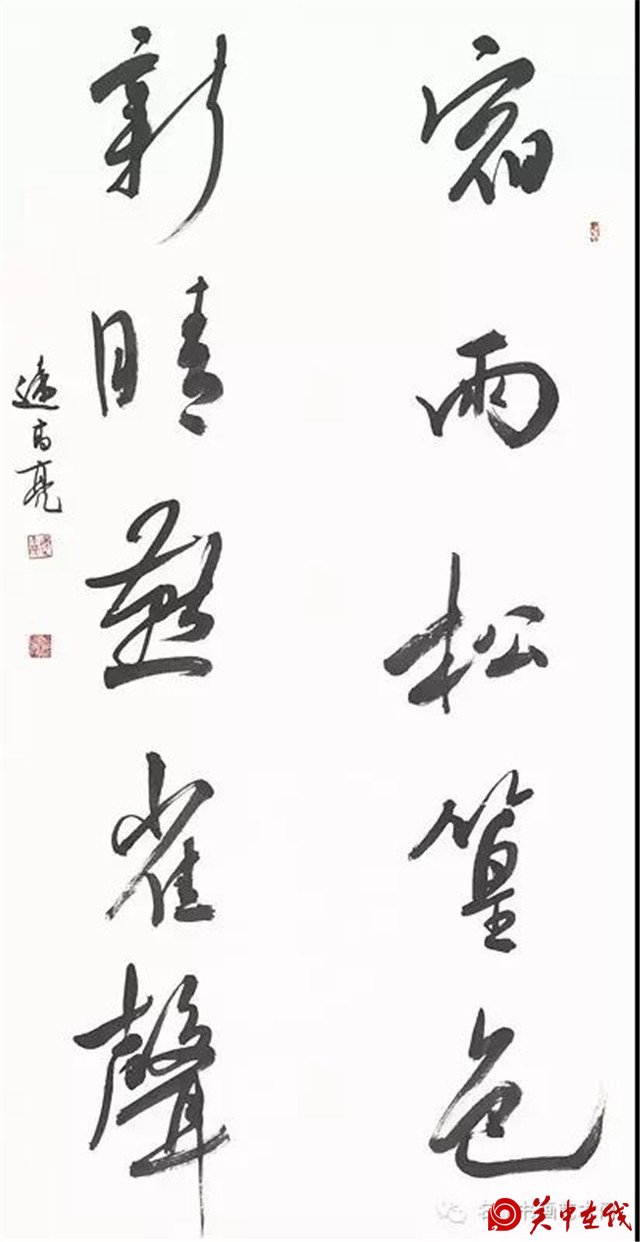 宿雨松篁色
新晴燕雀聲
高亮
关中在线